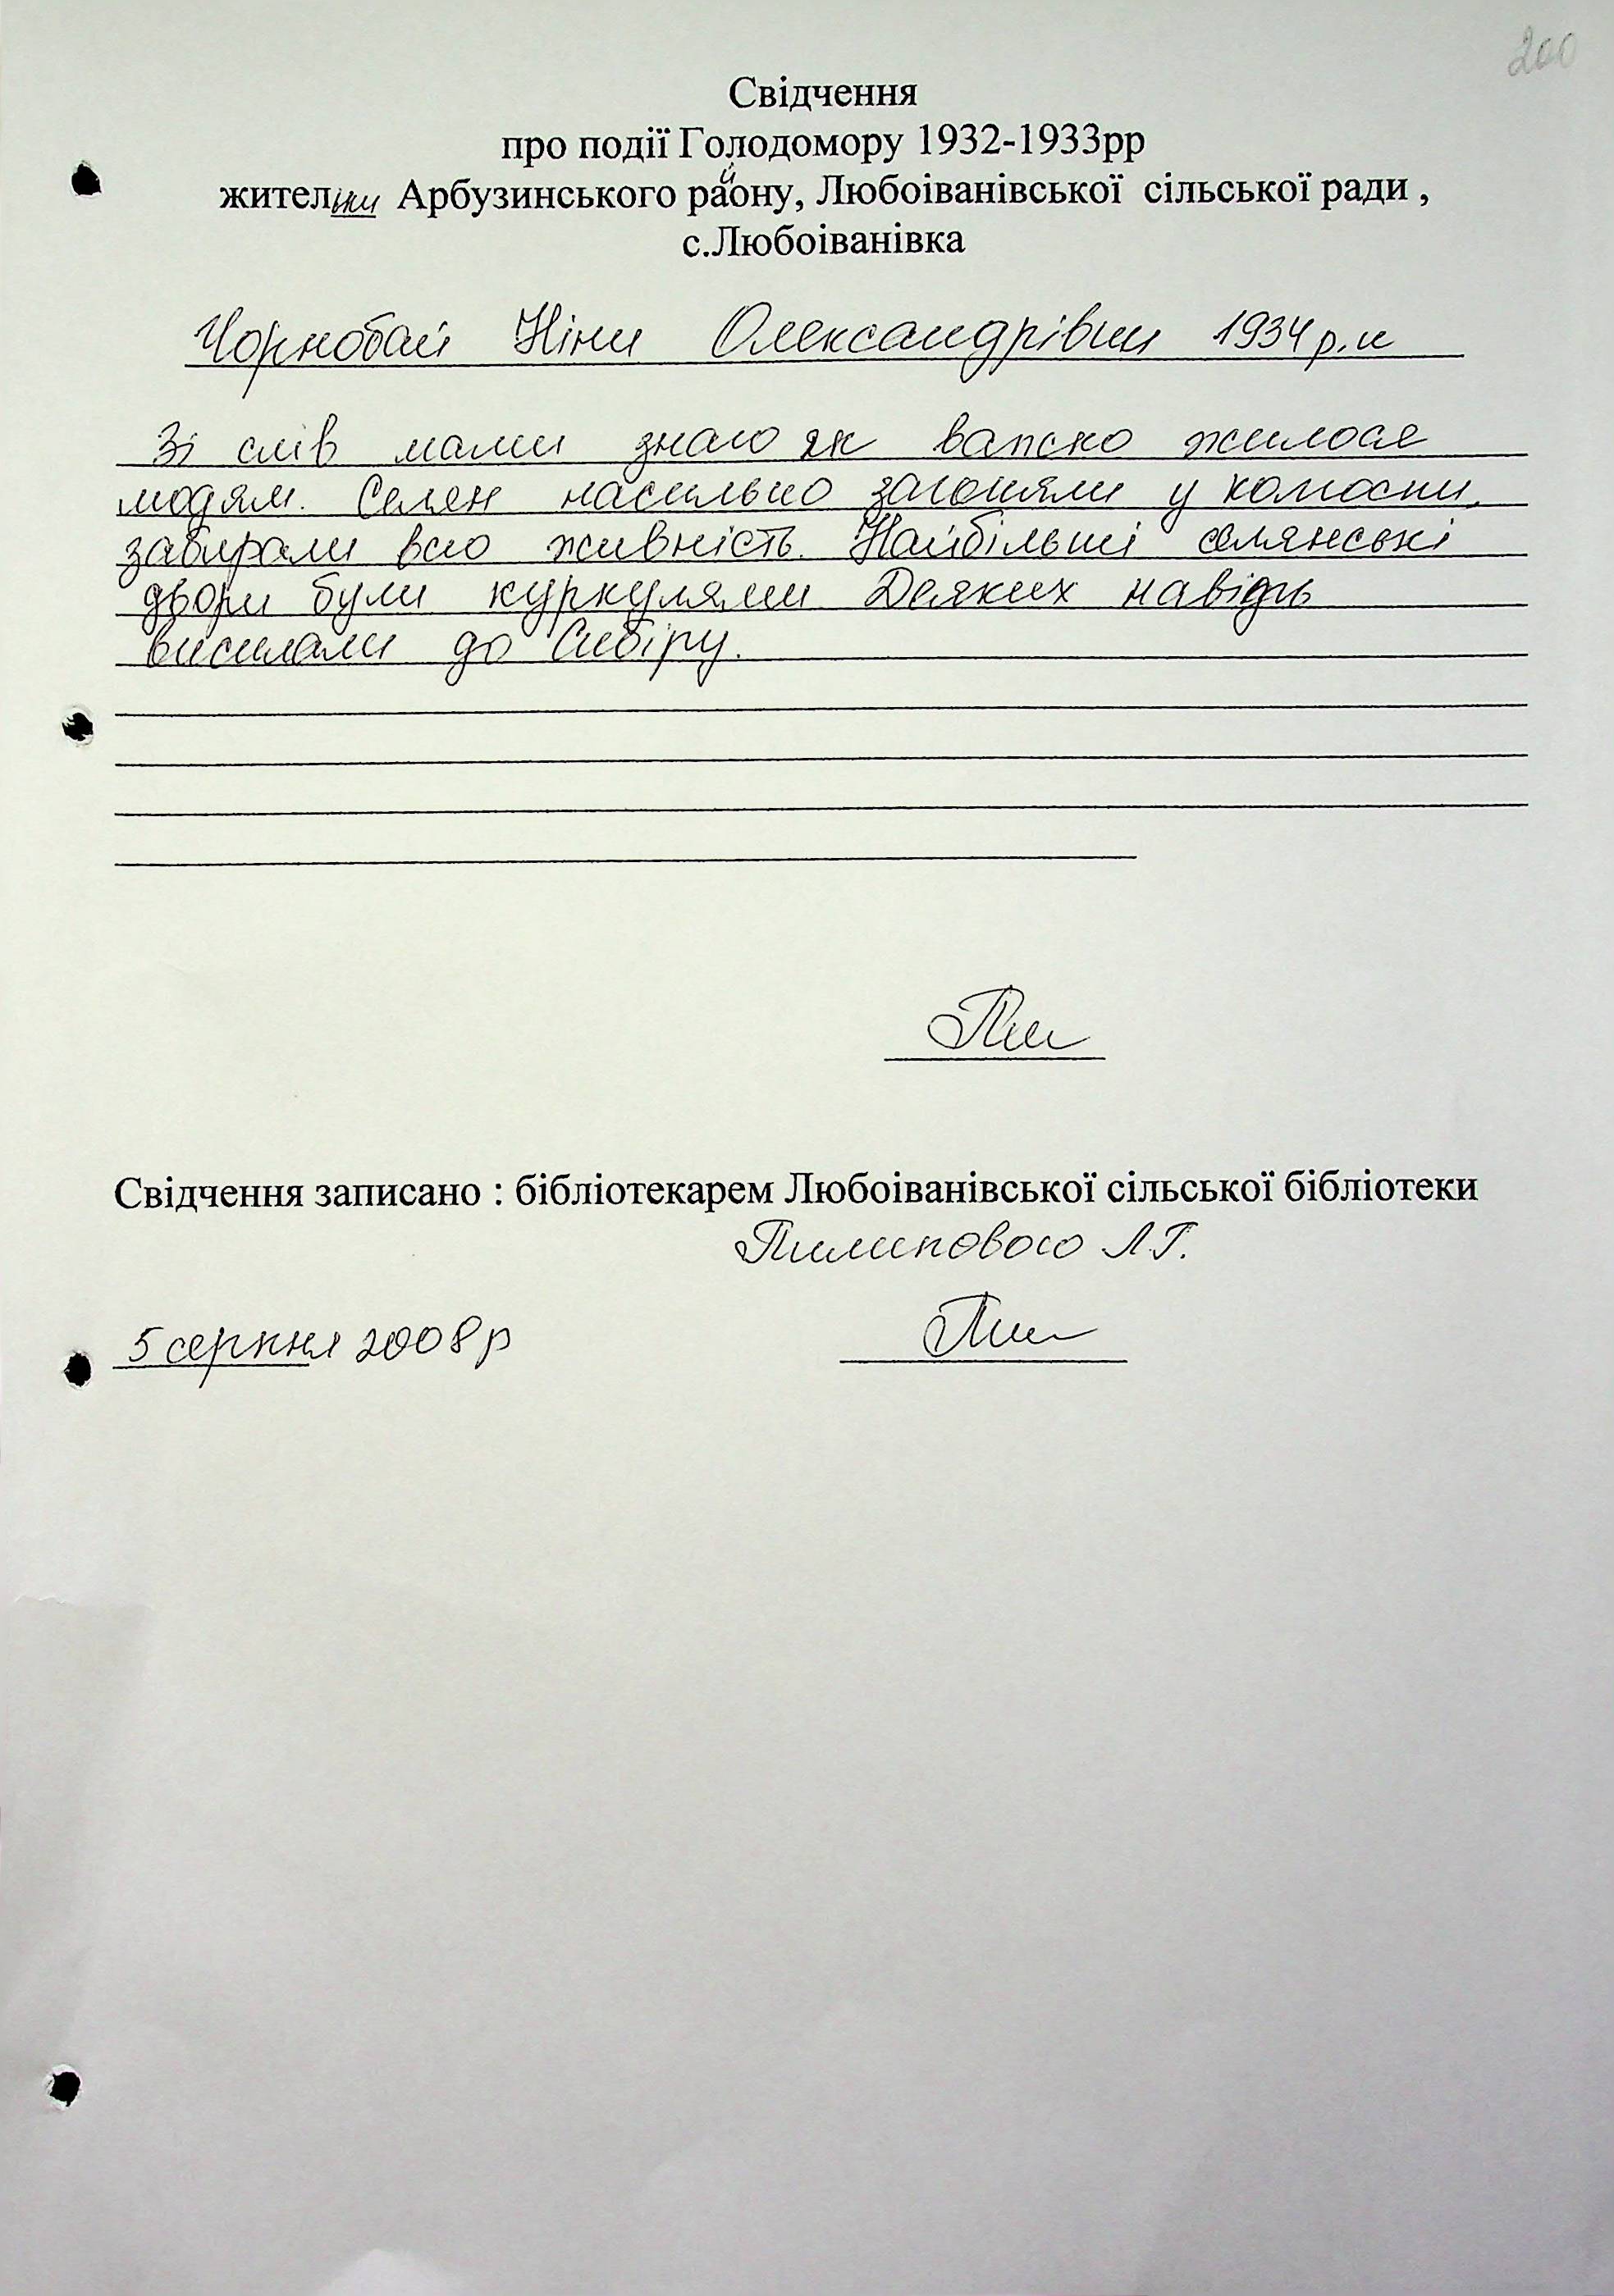 200
Свідчення
про події Голодомору 1932-1933рр
жительки Арбузинського району, Любоіванівської сільської ради ,
с.Любоіванівка
Чорнобай Ніни Олександрівни 1934 р.н
Зі слів мами знаю як важко жилося
людям. Селян насильно заганяли у колгоспи,
забирали всю живність. Найбільші селянські
двори були куркулями Деяких навідь
висилали до Сибіру.
Свідчення записано : бібліотекарем Любоіванівської сільської бібліотеки
Пилиповою Л.Г.
5 серпня 2008р